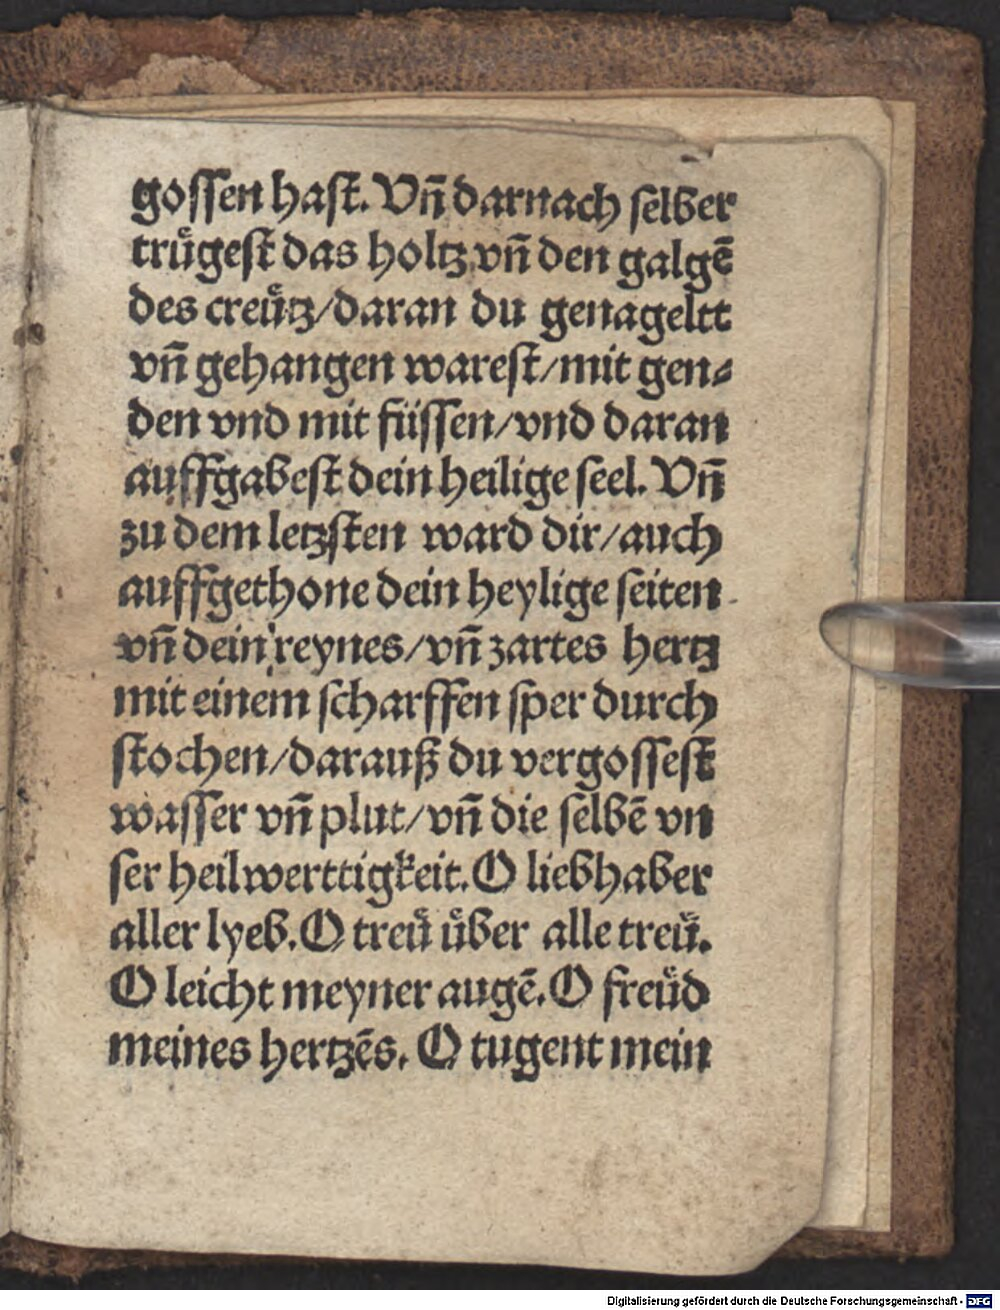 gossen hast. Vn̄ darnach selber
trůgest das holtz vn̄ den galgē
des creütz/daran du genageltt
vn̄ gehangen warest/mit gen⸗
den vnd mit füssen/vnd daran
auffgabest dein heilige seel. Vn̄
zu dem letzsten ward dir/auch
auffgethone dein heylige seiten
vn̄ dein reynes/vn̄ zartes hertz
mit einem scharffen sper durch
stochen/darauß du vergossest
wasser vn̄ plut/vn̄ die selbē vn
ser heilwerttigkeit. O liebhaber
aller lyeb. O treü über alle treü.
O leicht meyner augē. O freüd
meines hertzēs. O tugent mein
Digitalisierung gefördert durch die Deutsche Forschungsgemeinschaft - DFG